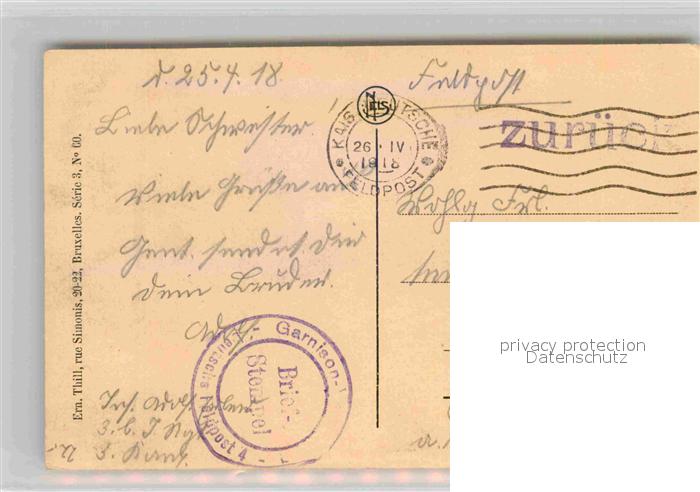 d. 25.4.18.
Feldpost
NELS
KAIS. DEUTSCHE
26 · IV
1918
FELDPOST
zurück
Liebe Schwester!
viele Grüße aus
Gent sendet Dir
Dein Bruder
Adolf.
Wohlg. Frl.
Ern. Thill, rue Simonis, 20-22, Bruxelles. Série 3, No 60.
Garnison-
Brief-
Stempel
Deutsche Feldpost 4
Inf. Adolf
3. b. I. Rgt.
3. Komp.
privacy protection
Datenschutz